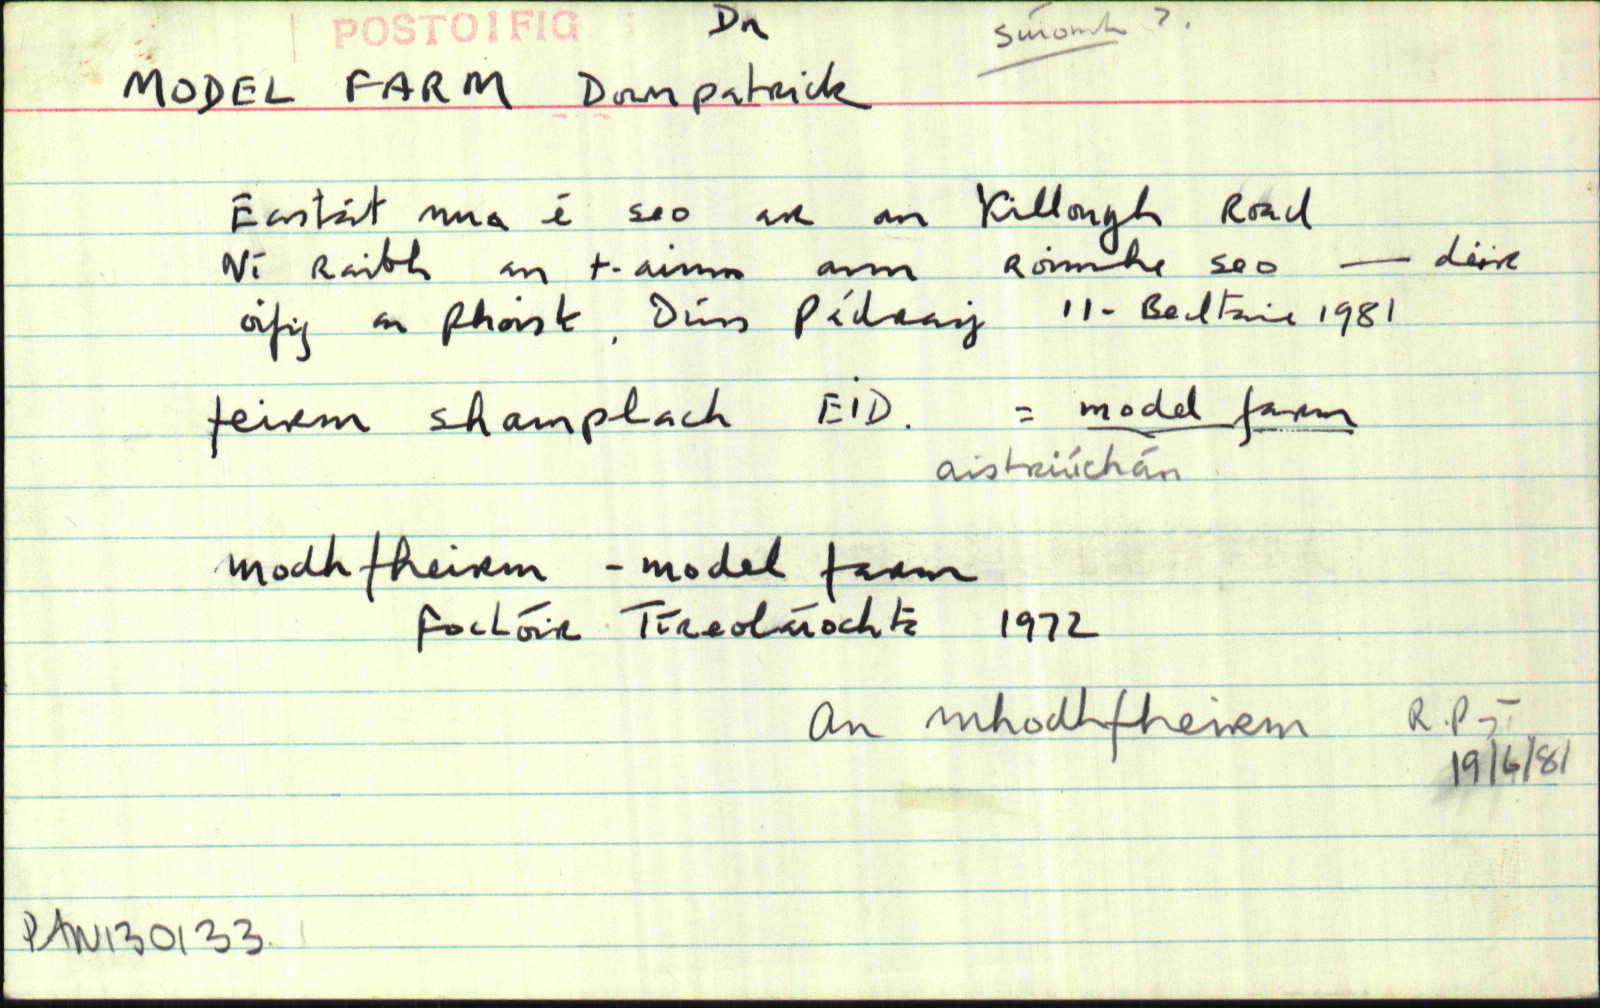 POSTOIFIG Dn suíomh ?.
MODEL FARM Downpatrick
Eastát nua é seo ar an Killough Road
Ní raibh an t-ainm ann roimhe seo — deir
oifig an phoist, Dún Pádraig 11- Bealtaine 1981
feirm shamplach EID. = model farm
aistriúchán
modhfheirm - model farm
Foclóir Tíreolaíochta 1972
An mhodhfheirm
19/6/81
PAN130133